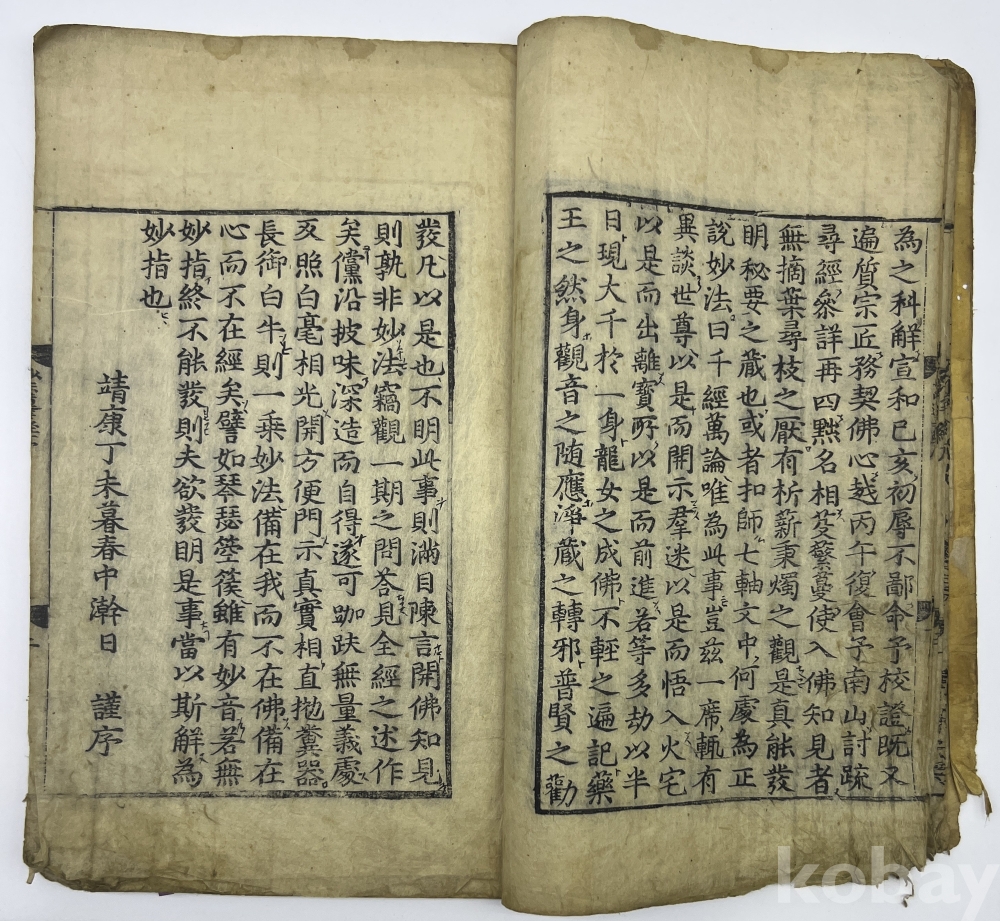 為之科解宣和己亥初辱不鄙命予校證既又
遍質宗匠務契佛心越丙午復會予南山討疏
尋經叅詳再四㸃名相芟繁蔓使入佛知見者
無摘葉尋枝之厭有析薪秉燭之觀是真能發
明秘要之蔵也或者扣師七軸文中何處為正
說妙法曰千經萬論唯為此事豈玆一席輒有
異談世尊以是而開示羣迷以是而悟入火宅
以是而出離寶所以是而前進若等多劫以半
日現大千於一身龍女之成佛不輕之遍記藥
王之然身觀音之随應淨蔵之轉邪普賢之勸
發凡以是也不明此事則滿目陳言開佛知見
則孰非妙法竊觀一期之問荅見全經之述作
矣儻沿披味深造而自得遂可跏趺無量義處
反照白毫相光開方便門示真實相直抛糞器
長御白牛則一乗妙法備在我而不在佛備在
心而不在經矣譬如琴瑟箜篌雖有妙音若無
妙指終不能發則夫欲發明是事當以斯解為
妙指也
靖康丁未暮春中澣日 謹序
kobay